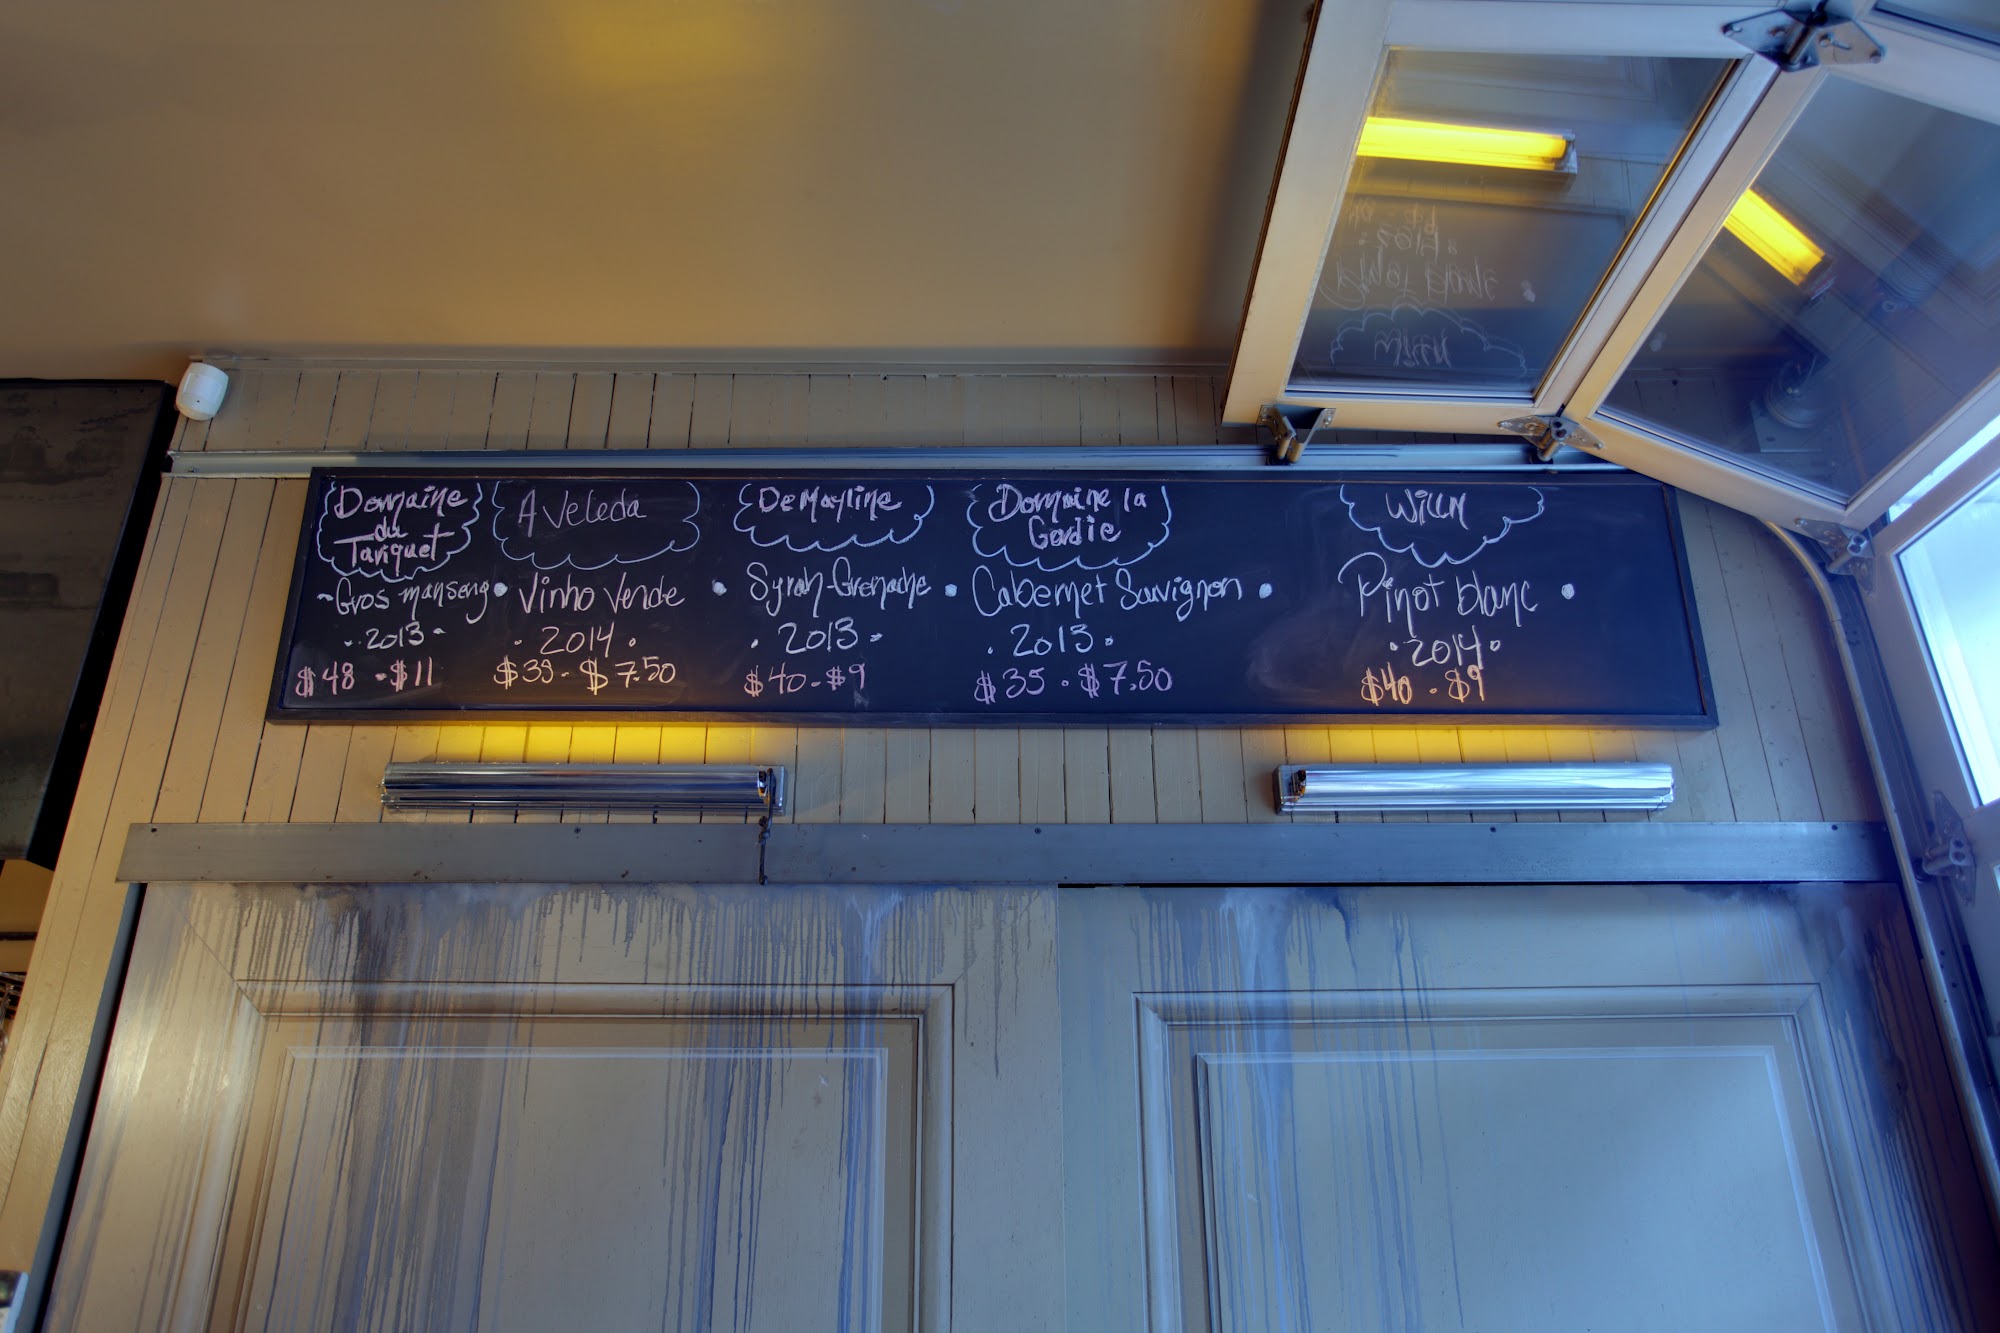 Domaine
du
Tariquet
~Gros manseng
• 2013 •
$48 - $11
Aveleda
• Vinho Verde
• 2014 •
$39 - $7.50
DeMayline
• Syrah-Grenache
• 2013 •
$40 - $9
Domaine la
Gordie
• Cabernet Sauvignon •
• 2013 •
$35 - $7.50
Willm
Pinot blanc •
• 2014 •
$40 - $9